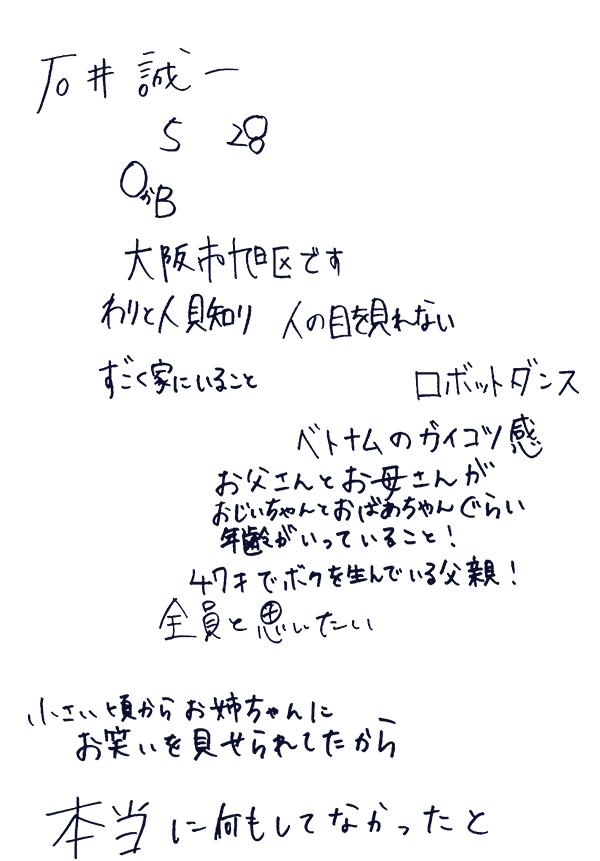 石井誠一
5 28
OかB
大阪市旭区です
わりと人見知り 人の目を見れない
すごく家にいること
ロボットダンス
ベトナムのガイコツ感
お父さんとお母さんが
おじいちゃんとおばあちゃんぐらい
年齢がいっていること!
47才でボクを生んでいる父親!
全員と思いたい
小さい頃からお姉ちゃんに
お笑いを見せられてたから
本当に何もしてなかったと